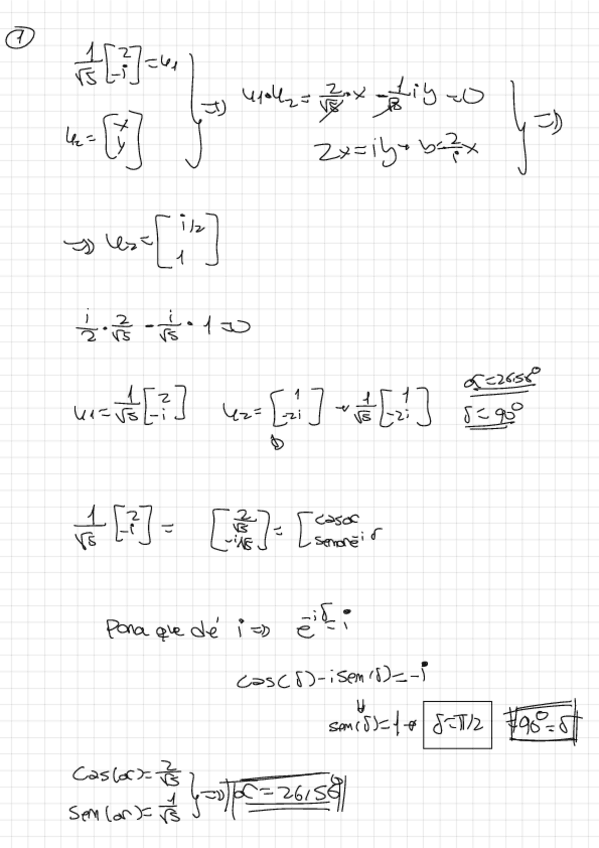 1
1/√5 [2 -i] = u1
u2 = [x y]
⇒ u1·u2 = 2/√5·x - 1/√5 iy = 0
2x = iy → y = 2/i x
⇒
⇒ u2 = [i/2 1]
i/2 · 2/√5 - i/√5 · 1 = 0
u1 = 1/√5 [2 -i] u2 = [1 -2i] → 1/√5 [1 -2i]
α = 26,56°
δ = 90°
1/√5 [2 -i] = [2/√5 -i/√5] = [cosα senα e^-iδ
Para que dé i ⇒ e^-iδ = -i
cos(δ) - i sen(δ) = -i
⇓
sen(δ) = 1 → δ = π/2 90° = δ
cos(α) = 2/√5
sen(α) = 1/√5
⇒ α = 26,56°